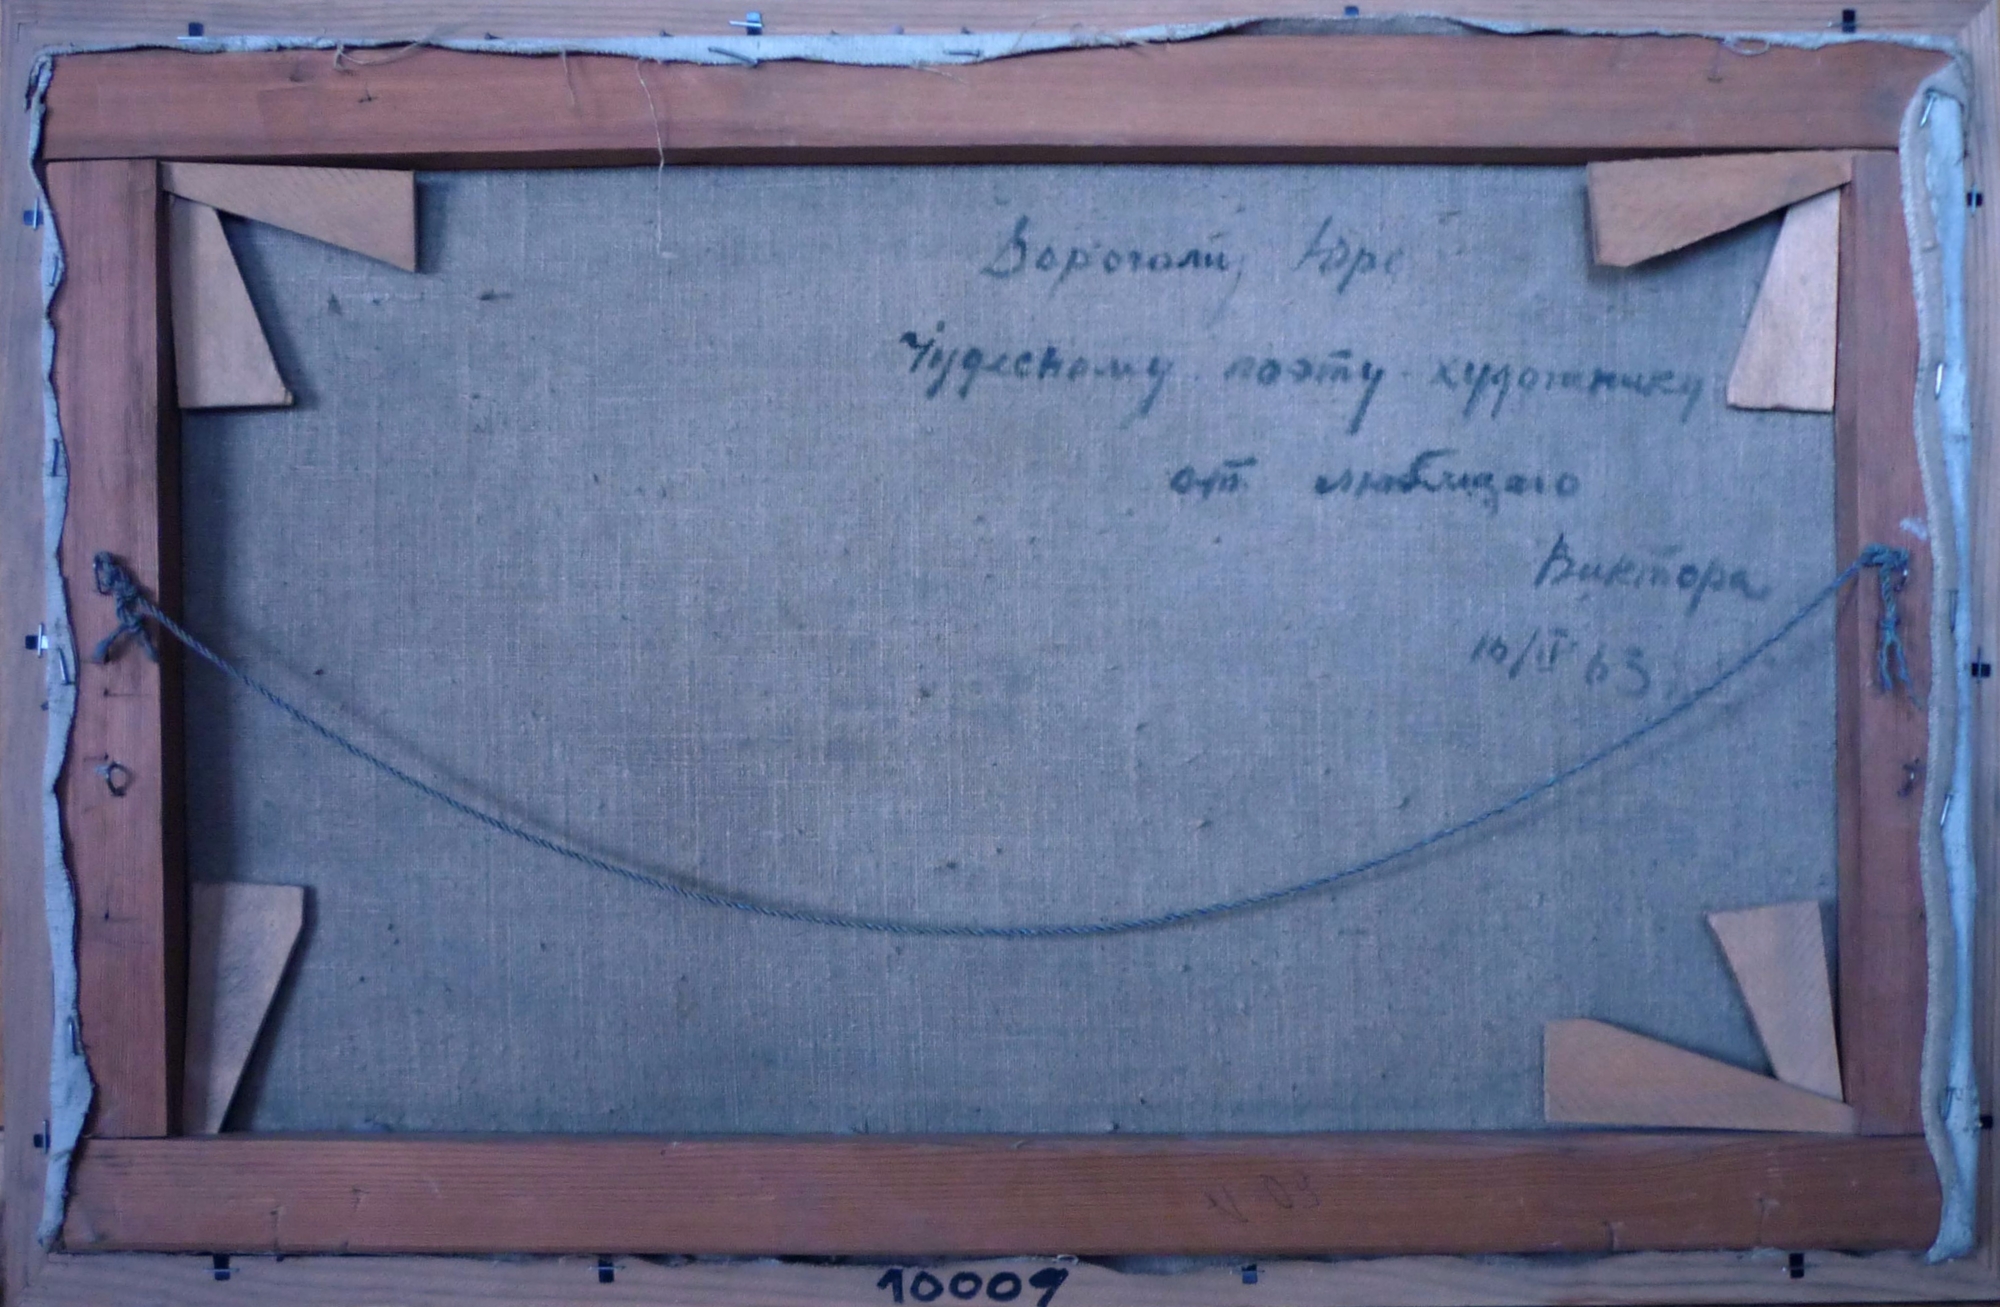 Дорогому Юре
Чудесному поэту-художнику
от любящего
Виктора
10/IV 63
10009